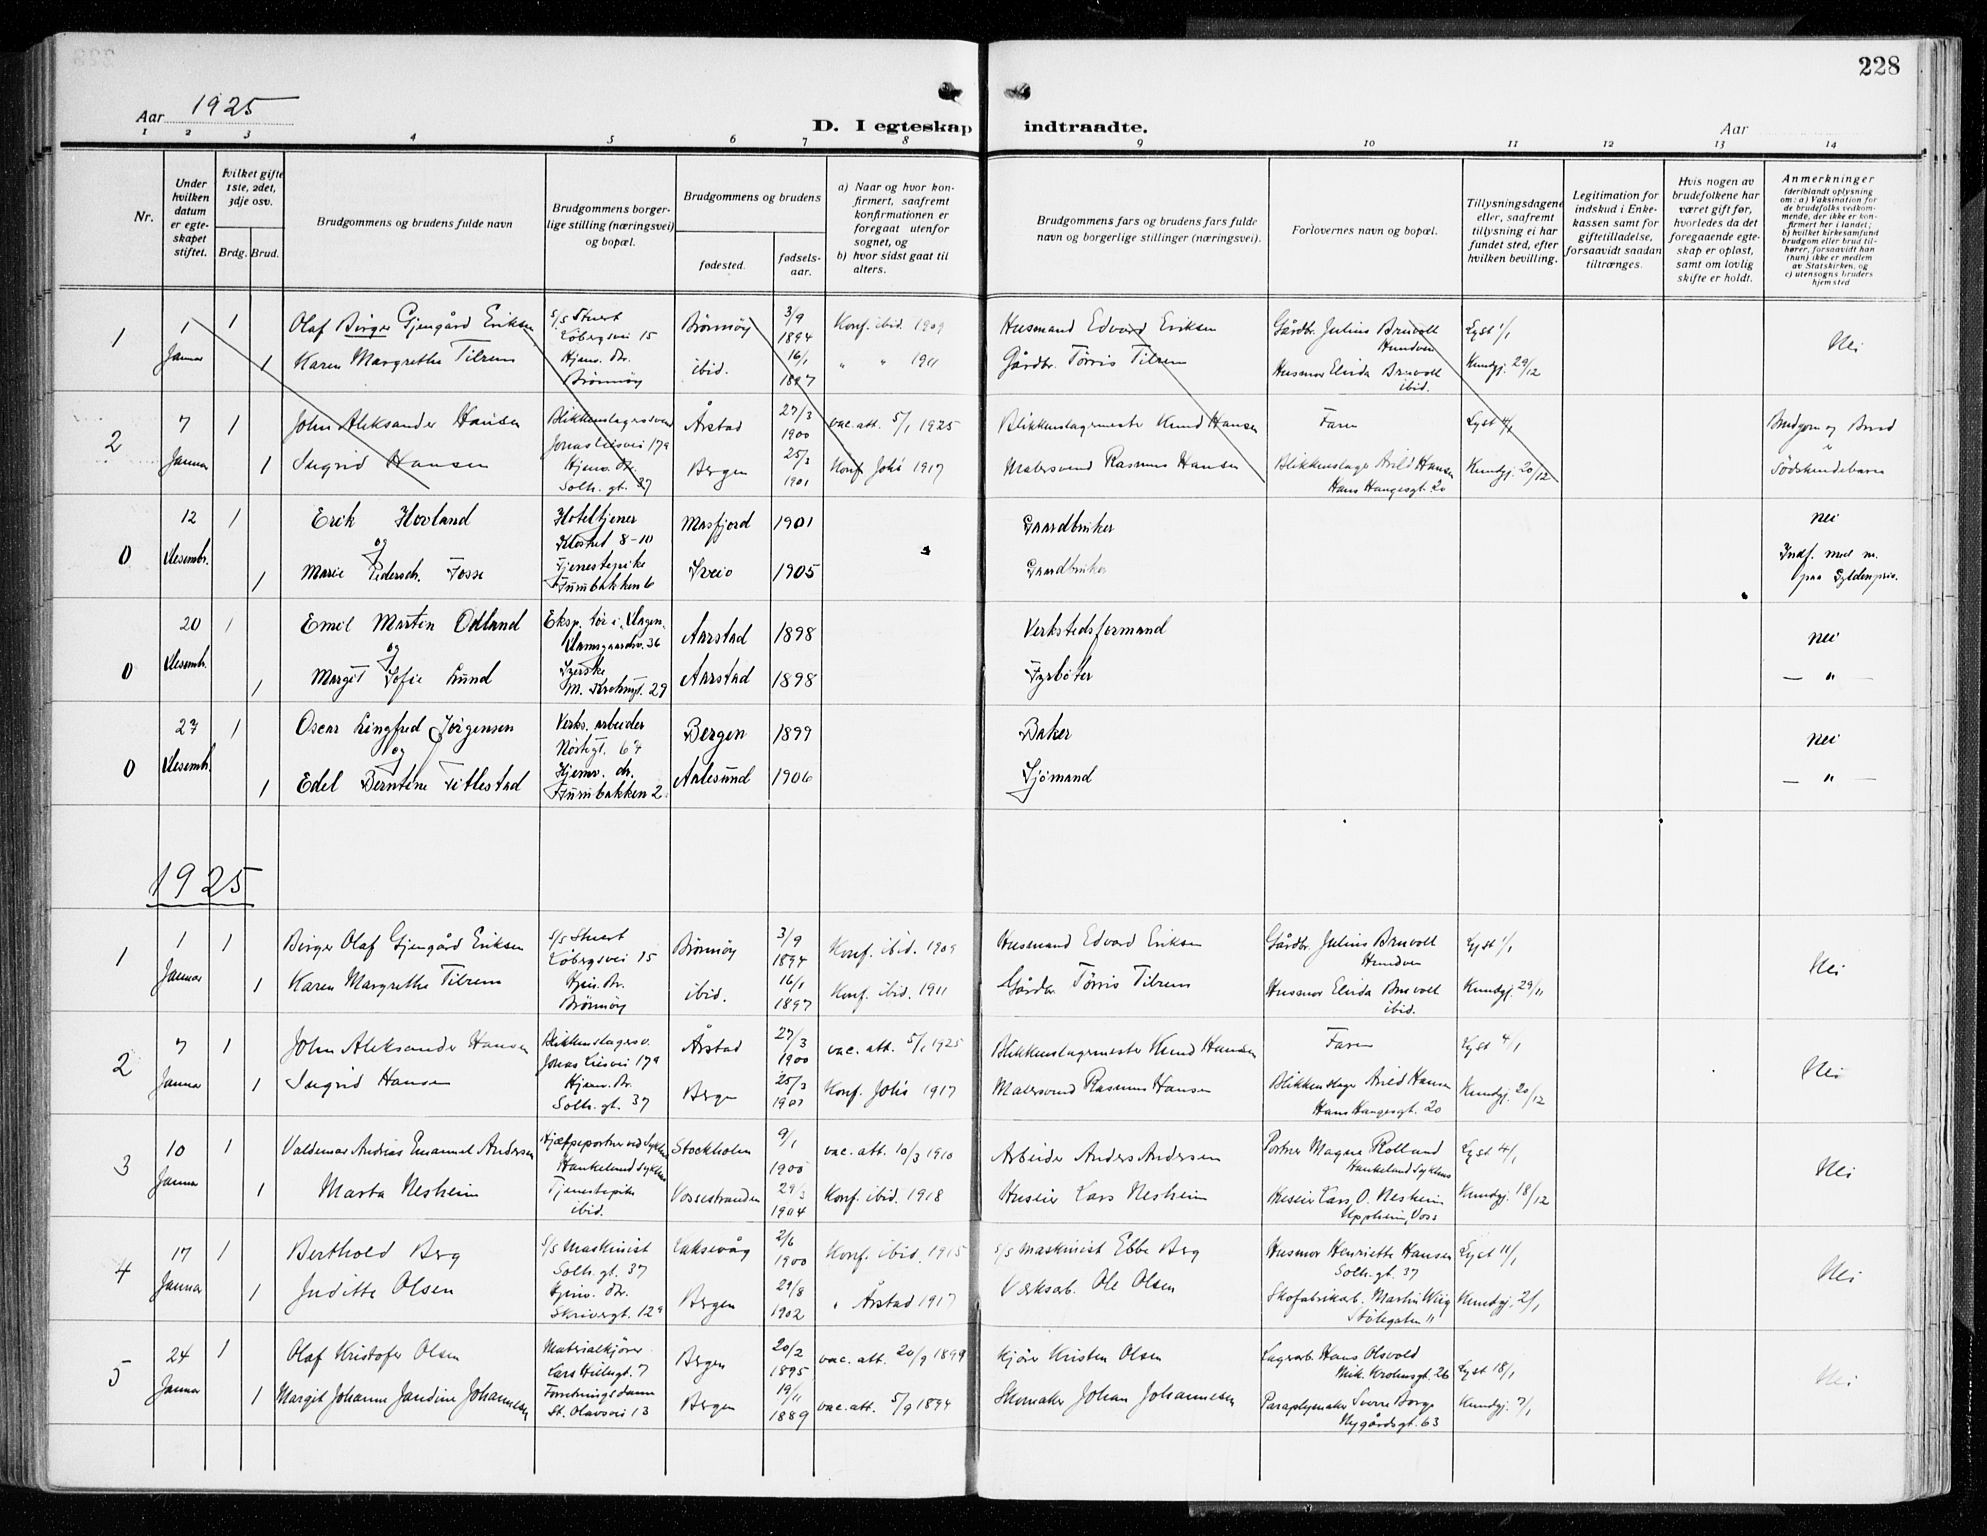 228
Aar 1925
D. I egteskap indtraadte.
Aar
1 2 3 4 5 6 7 8 9 10 11 12 13 14
Nr.
Under hvilken datum er egteskapet stiftet.
Hvilket gifte 1ste, 2det, 3dje osv.
Brdg. Brud.
Brudgommens og brudens fulde navn
Brudgommens borgerlige stilling (næringsvei) og bopæl.
Brudgommens og brudens
fødested. fødselsaar.
a) Naar og hvor konfirmert, saafremt konfirmationen er foregaat utenfor sognet, og
b) hvor sidst gaat til alters.
Brudgommens fars og brudens fars fulde navn og borgerlige stillinger (næringsvei).
Forlovernes navn og bopæl.
Tillysningsdagene eller, saafremt tillysning ei har fundet sted, efter hvilken bevilling.
Legitimation for indskud i Enkekassen samt for giftetilladelse, forsaavidt saadan tiltrænges.
Hvis nogen av brudefolkene har været gift før, hvorledes da det foregaaende egteskap er opløst, samt om lovlig skifte er holdt.
Anmerkninger
(deriblandt oplysning om: a) Vaksination for de brudefolks vedkommende, der ikke er konfirmert her i landet; b) hvilket kirkesamfund brudgom eller brud tilhører, forsaavidt han (hun) ikke er medlem av Statskirken, og c) utensogns bruders hjemsted
1 1 1 Olaf Birger Gjengård Eriksen S/S Stuert Brønnøy 3/9 Konf. ibid. 1909 Husmand Edvard Eriksen Gårdbr. Julius Bruvolt Lyst 1/1
Løbergsvei 15 1894 Hundven Nei
Januar 1 Karen Margrethe Tilrem Hjemv. dr. ibid. 16/1 " " 1911 Gårdbr. Tørris Tilrem Husmor Elida Bruvolt Kundgj. 29/12
Brønnøy 1897 ibid.
2 7 1 John Aleksander Hansen Blikkenslagersvend Årstad 27/3 vac. att. 5/1 1925 Blikkenslagermester Knud Hansen Faren Lyst 4/1 Brudgom og Brud
Jonas Liesvei 179 1900
Januar 1 Ingrid Hansen Hjemv. dr. Bergen 25/3 Konf. Johs 1917 Malersvend Rasmus Hansen Blikkenslager Arild Hansen Kundgj. 20/12 Sødskendebarn
Solh. gt. 37 1901 Hans Haugesgt. 20
12 1 Erik Hovland Hoteltjener Masfjord 1901 Gaardbruker nei
0 Desembr. og Klostret 8-10
1 Marie Pedersdr. Fosse Tjenestepike Sveio 1905 Gaardbruker Indf. med m.
Furubakken 6 paa Gyldenpris.
20 1 Emil Martin Odland Eksp. tør i. Aarstad 1898 Verkstedsformand nei
0 Desembr. og Damsgaardsv. 36
1 Margit Sofie Lund Syerske Aarstad 1898 Fyrbøter — " —
29
27 1 Oscar Lingfred Jørgensen Verks. arbeider Bergen 1899 Baker nei
0 Desembr. og Nøstegt. 67
1 Edel Berntine Titlestad Hjemv. dr. Aalesund 1906 Sjømand — " —
Furubakken 2
1925
1 1 1 Birger Olaf Gjengård Eriksen S/S Stuert Brønnøy 3/9 Konf. ibid. 1909 Husmand Edvard Eriksen Gårdbr. Julius Bruvolt Lyst 1/1
Løbergsvei 15 1894 Hundven Nei
Januar 1 Karen Margrethe Tilrem Hjem. dr. ibid. 16/1 Konf. ibid. 1911 Gårdbr Tørris Tilrem Husmor Elida Bruvolt Kundgj. 29/11
Brønnøy 1897 ibid.
2 7 1 John Aleksander Hansen Blikkenslagersv. Årstad 27/3 vac. att. 5/1 1925 Blikkenslagermester Knud Hansen Faren Lyst 4/1
Jonas Liesvei 179 1900 Nei
Januar 1 Ingrid Hansen Hjemv. dr. Bergen 25/3 Konf. Johs 1917 Malersvend Rasmus Hansen Blikkenslager Arild Hansen Kundgj. 20/12
Solh. gt. 37 1901 Hans Haugesgt. 20
3 10 1 Valdemar Andreas Emanuel Andersen Hjælpeportner ved Sykhus Stockholm 9/1 vac. att. 10/3 1910 Arbeider Anders Andersen Portner Magne Rolland Lyst 4/1
Haukeland Sykhus 1900 Haukeland Sykehus Nei
Januar 1 Marta Nesheim Tjenestepike Vossestranden 29/3 Konf. ibid. 1918 Huseier Lars Nesheim Huseier Lars O. Nesheim Kundgj. 18/12
ibid. 1904 Uppheim, Voss
4 17 1 Berthold Berg S/S Maskinist Laksevåg 2/6 Konf. ibid. 1915 S/S Maskinist Ebbe Berg Husmor Henriette Hansen Lyst 11/1
Solh. gt. 37 1900 Solh. gt. 37 Nei
Januar 1 Juditte Olsen Hjemv. dr. Bergen 29/8 " Årstad 1917 Verksarb. Ole Olsen Skofabrikarb. Martin Wiig Kundgj. 2/1
Skrivergt. 129 1902 Stølegaten 11
5 24 1 Olaf Kristofer Olsen Materialkjører Bergen 20/2 vac. att. 20/9 1899 Kjører Kristen Olsen Lagerarb. Hans Olsvold Lyst 18/1
Lars Hillesgt. 7 1895 Mik. Krohnsgt. 26 Nei
Januar 1 Margit Johanne Jandine Johannesen Forretningsdame Bergen 19/11 vac. att. 5/9 1894 Skomaker Johan Johannesen Paraplymaker Sverre Borge Kundgj. 7/1
St. Olavsvei 13 1889 Nygårdsgt. 63